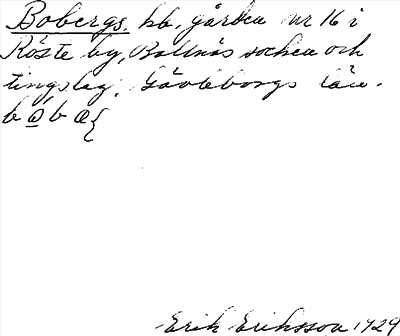 Bobergs, bb, gården nr 16 i
Röste by, Bollnäs socken och
tingslag, Gävleborgs län.
Erik Eriksson 1929